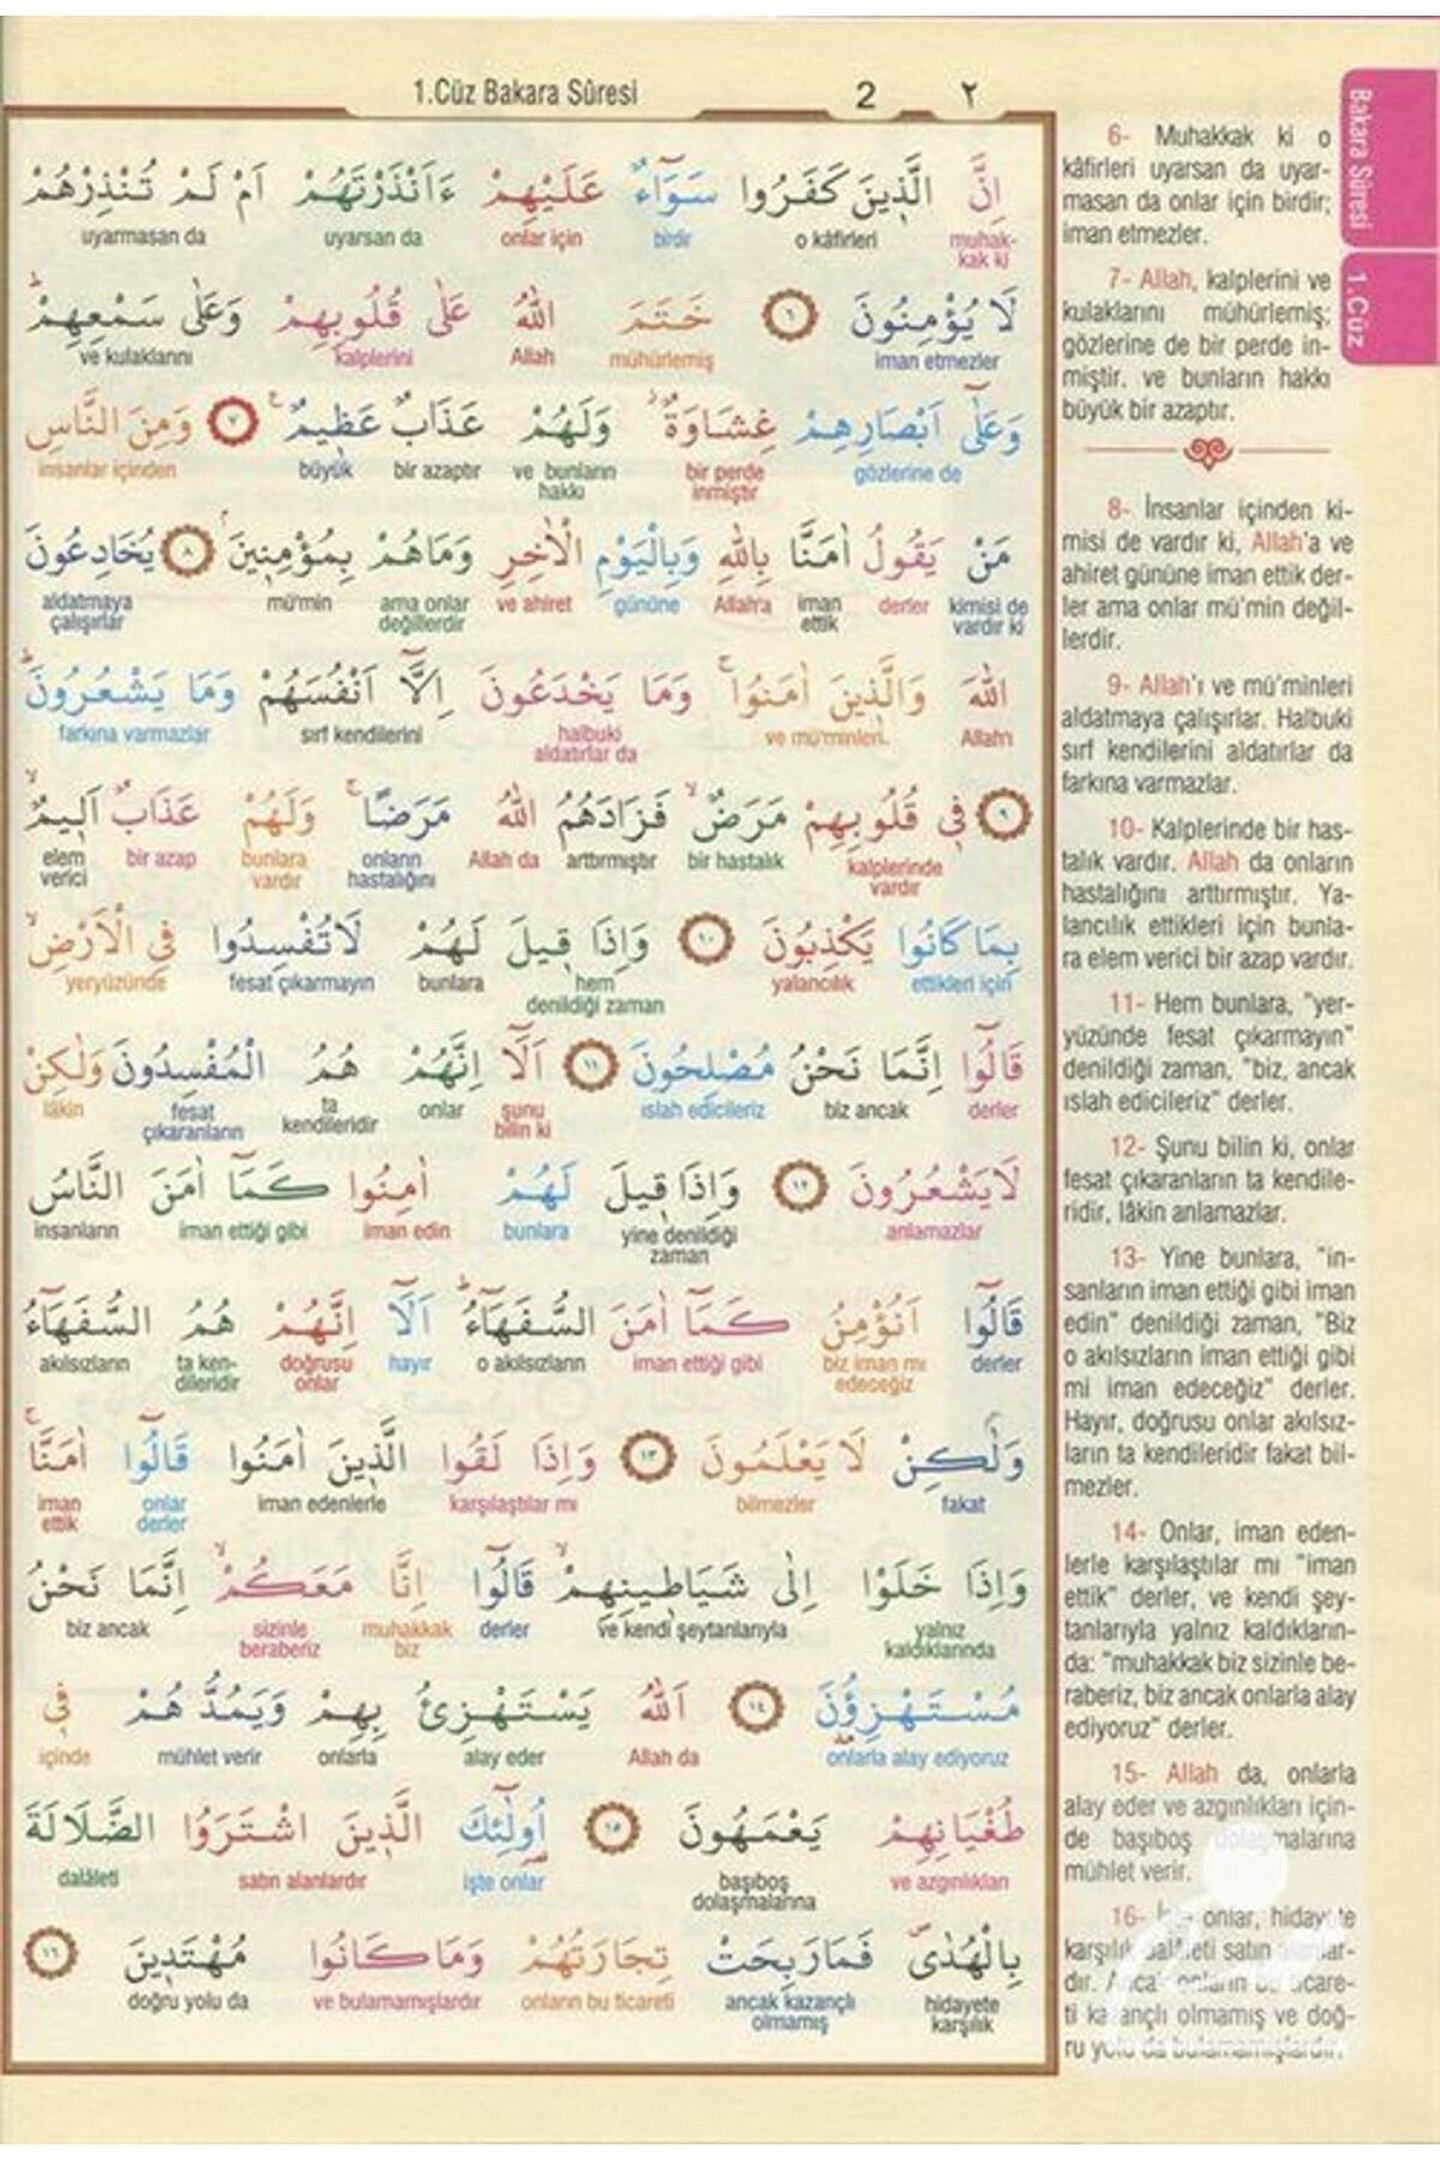 1.Cüz Bakara Sûresi 2 ٢
اِنَّ الَّذ۪ينَ كَفَرُوا سَوَٓاءٌ عَلَيْهِمْ ءَاَنْذَرْتَهُمْ اَمْ لَمْ تُنْذِرْهُمْ
muhak-kak ki o kâfirleri birdir onlar için uyarsan da uyarmasan da
لَا يُؤْمِنُونَ ٦ خَتَمَ اللّٰهُ عَلٰى قُلُوبِهِمْ وَعَلٰى سَمْعِهِمْۜ
iman etmezler mühürlemiş Allah kalplerini ve kulaklarını
وَعَلٰٓى اَبْصَارِهِمْ غِشَاوَةٌۘ وَلَهُمْ عَذَابٌ عَظ۪يمٌ۟ ٧ وَمِنَ النَّاسِ
gözlerine de bir perde inmiştir ve bunların hakkı bir azaptır büyük insanlar içinden
مَنْ يَقُولُ اٰمَنَّا بِاللّٰهِ وَبِالْيَوْمِ الْاٰخِرِ وَمَاهُمْ بِمُؤْمِن۪ينَۢ ٨ يُخَادِعُونَ
kimisi de vardır ki derler iman ettik Allah'a gününe ve ahiret ama onlar değillerdir mü'min aldatmaya çalışırlar
اللّٰهَ وَالَّذ۪ينَ اٰمَنُواۚ وَمَا يَخْدَعُونَ اِلَّٓا اَنْفُسَهُمْ وَمَا يَشْعُرُونَۜ
Allah'ı ve mü'minleri. halbuki aldatırlar da sırf kendilerini farkına varmazlar
٩ ف۪ي قُلُوبِهِمْ مَرَضٌۙ فَزَادَهُمُ اللّٰهُ مَرَضًاۚ وَلَهُمْ عَذَابٌ اَل۪يمٌۙ
kalplerinde vardır bir hastalık arttırmıştır Allah da onların hastalığını bunlara vardır bir azap elem verici
بِمَا كَانُوا يَكْذِبُونَ ١٠ وَاِذَا ق۪يلَ لَهُمْ لَاتُفْسِدُوا فِي الْاَرْضِۙ
ettikleri için yalancılık hem denildiği zaman bunlara fesat çıkarmayın yeryüzünde
قَالُٓوا اِنَّمَا نَحْنُ مُصْلِحُونَ ١١ اَلَٓا اِنَّهُمْ هُمُ الْمُفْسِدُونَ وَلٰكِنْ
derler biz ancak ıslah edicileriz şunu bilin ki onlar ta kendileridir fesat çıkaranların lâkin
لَايَشْعُرُونَ ١٢ وَاِذَا ق۪يلَ لَهُمْ اٰمِنُوا كَمَٓا اٰمَنَ النَّاسُ
anlamazlar yine denildiği zaman bunlara iman edin iman ettiği gibi insanların
قَالُٓوا اَنُؤْمِنُ كَمَٓا اٰمَنَ السُّفَهَٓاءُۜ اَلَٓا اِنَّهُمْ هُمُ السُّفَهَٓاءُ
derler biz iman mı edeceğiz iman ettiği gibi o akılsızların hayır doğrusu onlar ta ken-dileridir akılsızların
وَلٰكِنْ لَا يَعْلَمُونَ ١٣ وَاِذَا لَقُوا الَّذ۪ينَ اٰمَنُوا قَالُٓوا اٰمَنَّاۚ
fakat bilmezler karşılaştılar mı iman edenlerle onlar derler iman ettik
وَاِذَا خَلَوْا اِلٰى شَيَاط۪ينِهِمْۙ قَالُٓوا اِنَّا مَعَكُمْۙ اِنَّمَا نَحْنُ
yalnız kaldıklarında ve kendi şeytanlarıyla derler muhakkak biz sizinle beraberiz biz ancak
مُسْتَهْزِؤُ۫نَ ١٤ اَللّٰهُ يَسْتَهْزِئُ بِهِمْ وَيَمُدُّهُمْ ف۪ي
onlarla alay ediyoruz Allah da alay eder onlarla mühlet verir içinde
طُغْيَانِهِمْ يَعْمَهُونَ ١٥ اُو۬لٰٓئِكَ الَّذ۪ينَ اشْتَرَوُا الضَّلَالَةَ
ve azgınlıkları başıboş dolaşmalarına işte onlar satın alanlardır dalâleti
بِالْهُدٰىۖ فَمَارَبِحَتْ تِجَارَتُهُمْ وَمَا كَانُوا مُهْتَد۪ينَ ١٦
hidayete karşılık ancak kazançlı olmamış onların bu ticareti ve bulamamışlardır doğru yolu da
6- Muhakkak ki o
kâfirleri uyarsan da uyar-
masan da onlar için birdir;
iman etmezler.
7- Allah, kalplerini ve
kulaklarını mühürlemiş;
gözlerine de bir perde in-
miştir. ve bunların hakkı
büyük bir azaptır.
8- İnsanlar içinden ki-
misi de vardır ki, Allah'a ve
ahiret gününe iman ettik der-
ler ama onlar mü'min değil-
lerdir.
9- Allah'ı ve mü'minleri
aldatmaya çalışırlar. Halbuki
sırf kendilerini aldatırlar da
farkına varmazlar.
10- Kalplerinde bir has-
talık vardır. Allah da onların
hastalığını arttırmıştır. Ya-
lancılık ettikleri için bunla-
ra elem verici bir azap vardır.
11- Hem bunlara, "yer-
yüzünde fesat çıkarmayın"
denildiği zaman, "biz, ancak
ıslah edicileriz" derler.
12- Şunu bilin ki, onlar
fesat çıkaranların ta kendile-
ridir, lâkin anlamazlar.
13- Yine bunlara, "in-
sanların iman ettiği gibi iman
edin" denildiği zaman, "Biz
o akılsızların iman ettiği gibi
mi iman edeceğiz" derler.
Hayır, doğrusu onlar akılsız-
ların ta kendileridir fakat bil-
mezler.
14- Onlar, iman eden-
lerle karşılaştılar mı "iman
ettik" derler, ve kendi şey-
tanlarıyla yalnız kaldıkların-
da: "muhakkak biz sizinle be-
raberiz, biz ancak onlarla alay
ediyoruz" derler.
15- Allah da, onlarla
alay eder ve azgınlıkları için-
de başıboş dolaşmalarına
mühlet verir.
16- İşte onlar, hidayete
karşılık dalâleti satın alanlar-
dır. Ancak onların bu ticare-
ti kazançlı olmamış ve doğ-
ru yolu da bulamamışlardır.
Bakara Sûresi
1.Cüz